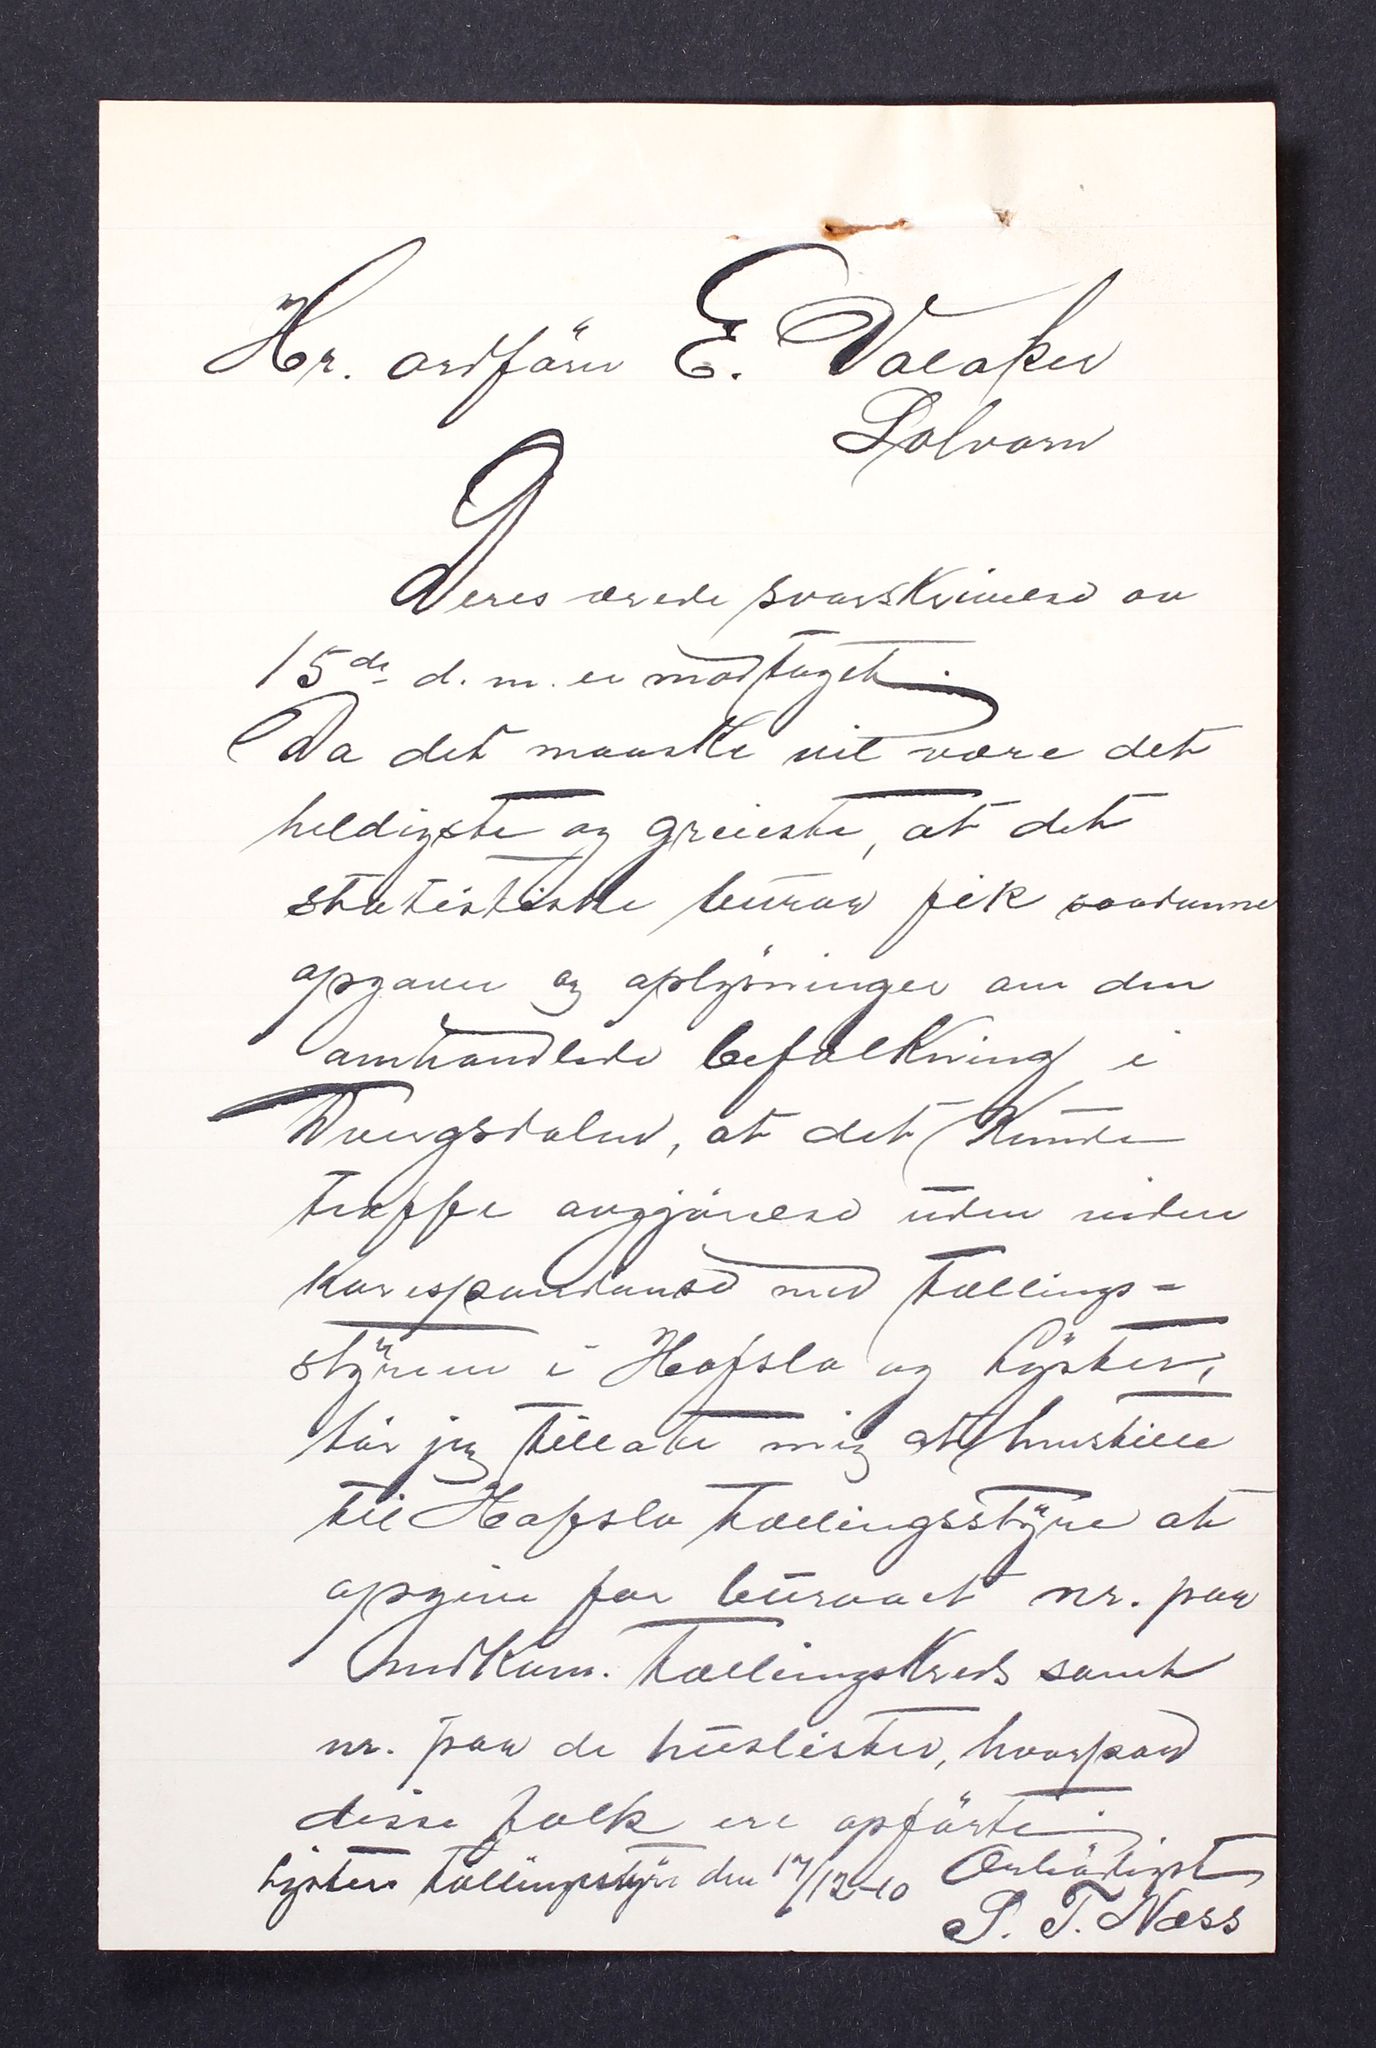 Hr. ordförer E. Valaker
Solvorn
Deres ærede svarskrivelse av
15de d. m. er modtaget.
Da det maaske vil være det
heldigste og greieste, at det
statistiske bureau fik saadanne
opgaver og oplysninger om den
omhandlede befolkning i
Vongsdalen, at det kunde
træffe avgjörelse uden videre
korespondanse med tællings-
styrene i Hafslo og Lyster,
tör jeg tillate mig at henstille
til Hafslo tællingsstyre at
opgive for bureaet nr. paa
vedkom. tællingskreds samt
nr. paa de huslister, hvorpaa
disse folk ere opförte.
Lyster tællingsstyre den 17/12-10 Ærbödigst
S. T. Næss